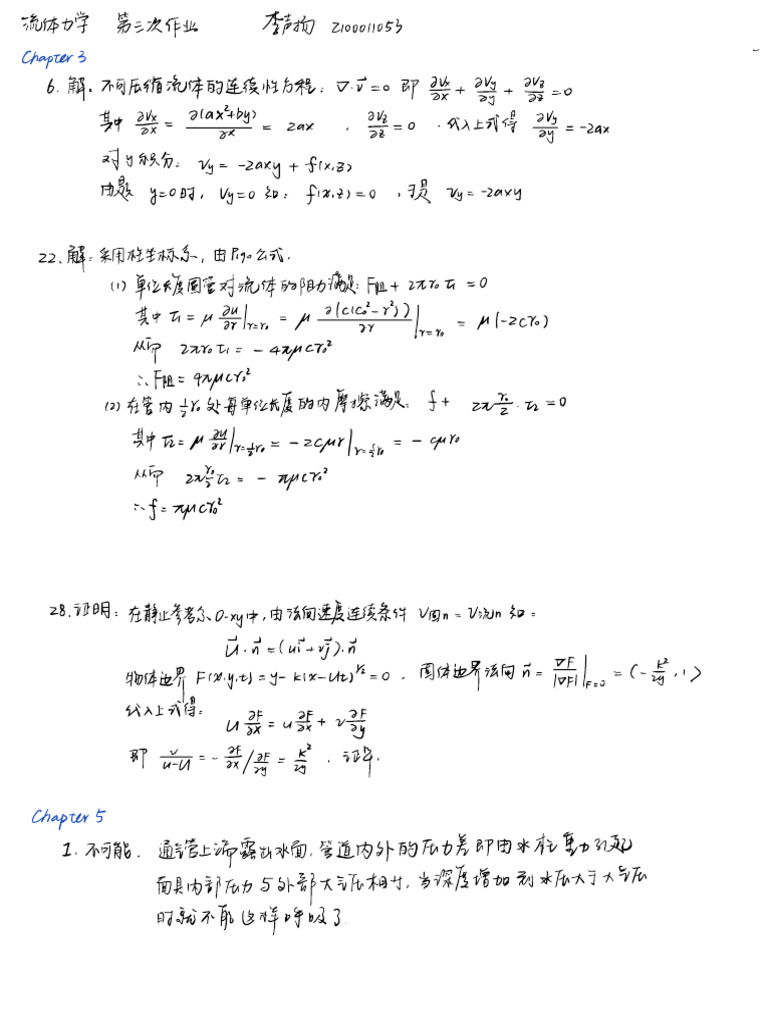 流体力学 第三次作业 李声扬 2100011053
Chapter 3
6. 解. 不可压缩流体的连续性方程: ∇·v⃗=0 即 ∂Vx/∂x + ∂Vy/∂y + ∂Vz/∂z =0
其中 ∂Vx/∂x = ∂(ax²+by)/∂x = 2ax , ∂Vz/∂z =0 . 代入上式得 ∂Vy/∂y = -2ax
对y积分: Vy = -2axy + f(x,z)
由题 y=0时, Vy=0 知: f(x,z)=0 , 于是 Vy=-2axy
22. 解: 采用柱坐标系, 由P190公式.
(1) 单位长度圆管对流体的阻力满足: F阻 + 2πr₀ τ₁ =0
其中 τ₁ = μ ∂u/∂r |r=r₀ = μ ∂(c(c₀²-r²))/∂r |r=r₀ = μ(-2cr₀)
从而 2πr₀ τ₁ = -4πμcr₀²
∴ F阻 = 4πμcr₀²
(2) 在管内 ½r₀ 处每单位长度的内摩擦满足: f + 2π r₀/2 · τ₂ =0
其中 τ₂ = μ ∂u/∂r |r=½r₀ = -2cμr |r=½r₀ = -cμr₀
从而 2π r₀/2 τ₂ = - πμcr₀²
∴ f = πμcr₀²
28. 证明: 在静止参考系O-xy中, 由法向速度连续条件 V固n = V流n 知:
U⃗·n⃗ = (ui⃗+vj⃗)·n⃗
物体边界 F(x,y,t) = y-k(x-Ut)^1/2 =0 , 固体边界法向 n⃗ = ∇F/|∇F| |F=0 = (-k²/2y , 1)
代入上式得: U ∂F/∂x = u ∂F/∂x + v ∂F/∂y
即 v/u-U = - ∂F/∂x / ∂F/∂y = k²/2y . 证毕.
Chapter 5
1. 不可能. 通气管上端露出水面, 管道内外的压力差即由水柱重力引起
面具内部压力与外部大气压相等, 当深度增加到水压大于大气压
时就不能这样呼吸了.